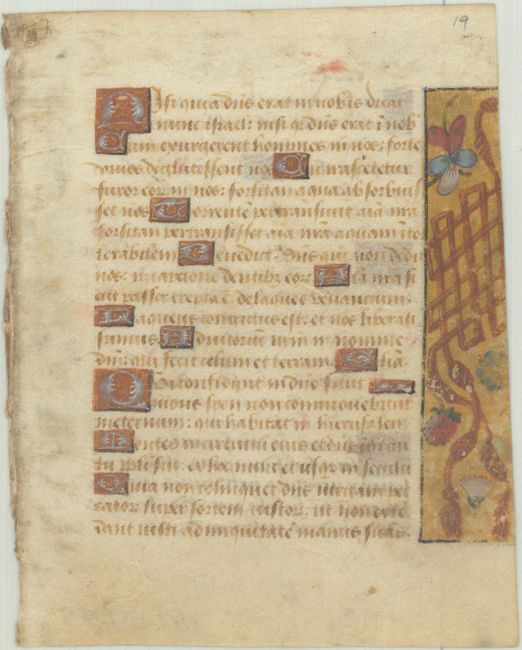 19
Nisi quia dn̄s erat in nobis dicat
nunc israel: nisi qr dn̄s erat ī nob
Cum exurgerent homines in nos: forte
vivos deglutissent nos Cū irasceretur
furor eor. in nos: forsitan aqua absorbuis
set nos Torrentē pertransivit aīa nr̄a
forsitan pertransisset aīa nr̄a aquam īto
lerabilem Benedict. dn̄s qui non dedit
nos: in captione dentibz eor: Aīa nr̄a si
cut passer erepta ē. de laqueo venantium
Laqueus contritus est: et nos liberati
sumus Adiutorium nr̄m in nomine
dn̄i: qui fecit celum et terram. Gl̄ia.
Qui confidunt in dn̄o sicut
mons syon non commovebitur
in eternum: qui habitat in hierusalem
Montes in circuitu eius et dn̄s in circui
tu ppl̄i sui: ex hoc nunc et usqz in seculū
Quia non relinquet dn̄s virgam pec
cator. super sortem iustor: ut non exten
dant iusti ad iniquitatē manus suas.